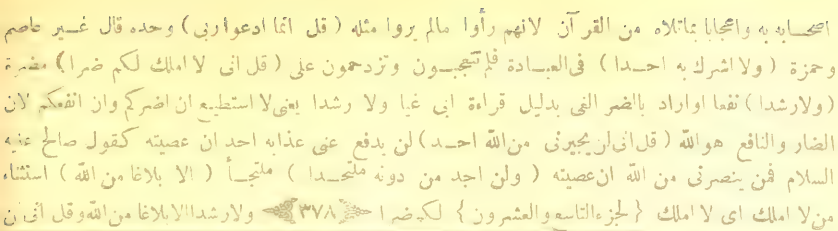 اصحابه به واعجابا بماتلاه من القرآن لانهم رأوا مالم يروا مثله ( قل انما ادعوا ربى ) وحده قال غير عاصم
وحمزة ( ولا اشرك به احدا ) فى العبادة فلم تتعجبون وتزدحمون على ( قل انى لا املك لكم ضرا ) مضرة
( ولا رشدا ) نفعا اواراد بالضر الغى بدليل قراءة ابى غيا ولا رشدا يعنى لا استطيع ان اضركم وان انفعكم لان
الضار والنافع هوالله ( قل انى لن يجيرنى من الله احد ) لن يدفع عنى عذابه احد ان عصيته كقول صالح عليه
السلام فمن ينصرنى من الله ان عصيته ( ولن اجد من دونه ملتحدا ) ملتجأ ( الا بلاغا من الله ) استثناء
من لا املك اى لا املك { الجزء التاسع والعشرون } لكم ضرا ٣٧٨ ولا رشدا الا بلاغا من الله وقل انى لن